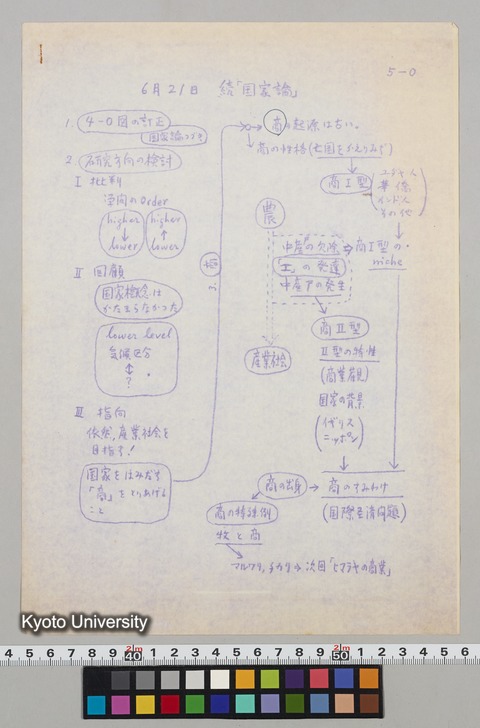 5-0
6月21日 続「国家論」
1. 4-0図の訂正
国家論つづき
2. 研究方向の検討
I 批判
方向のOrder
higher ↓ lower
higher ↑ lower
II 回顧
国家概念は
かたまらなかった
lower level
↕
?
III 指向
依然、産業社会を
目指す!
国家をはみだす
「商」をとりあげる
こと
3. 商
商の起源は古い。
商の性格(亡国をかえりみず)
商I型
ユダヤ人
華僑
インド人
その他
農
中産の欠除 ⇒ 商I型の
niche
"エ"の発達
中産アの発生
産業社会
商II型
II型の特性
(商業観)
国家の背景
イギリス
ニッポン
商の出身 → 商のすみわけ
(国際経済問題)
商の特殊例
牧と商
次回「ヒマラヤの商業」
Kyoto University
4 5 6 7 8 9 2m 40 1 2 3 4 5 6 7 8 9 2m 50 1 2 3 4 5 6